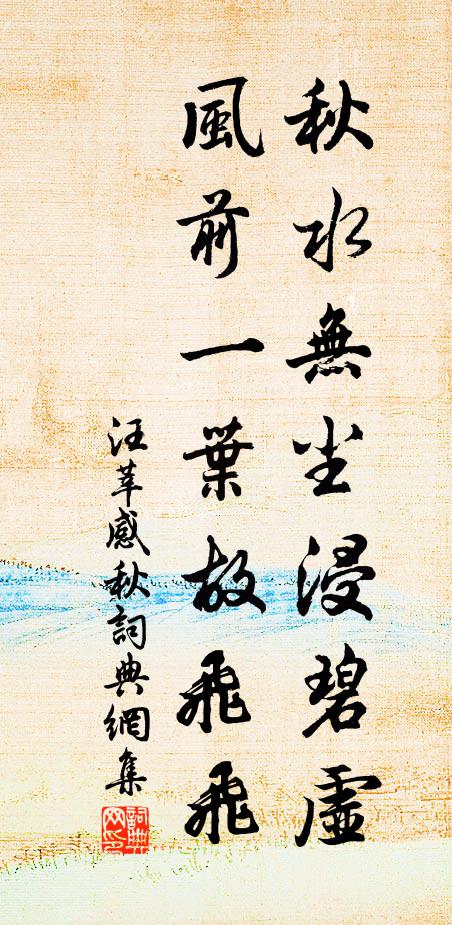 秋水無尘浸碧虛
風前一葉故飛飛
汪莘感秋詞典網集
詞典网印